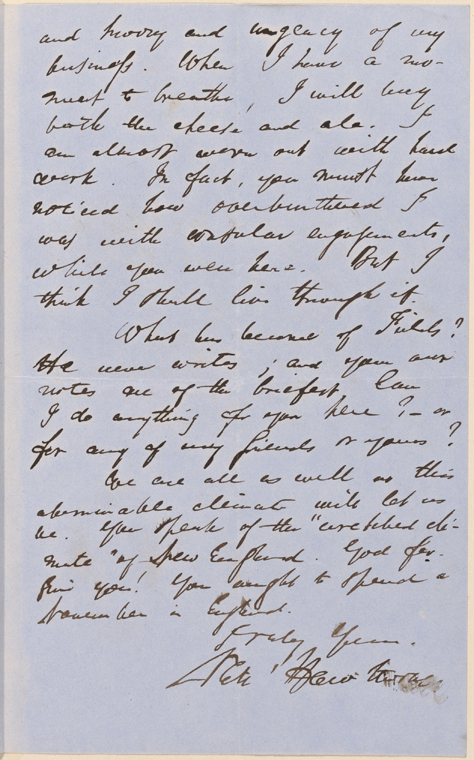 and hurry and urgency of my
business. When I have a mo-
ment to breathe, I will buy
both the cheese and ale. I
am almost worn out with hard
work. In fact, you must have
noticed how overburthened I
was with consular engagements,
while you were here. But I
think I shall live through it.
What has become of Fields?
He never writes; and your own
notes are of the briefest. Can
I do anything for you here?—or
for any of my friends or yours?
We are all as well as this
abominable climate will let us
be. You speak of the "wretched cli-
mate" of New England. God for-
give you! You ought to spend a
November in England.
Truly Yours.
Nath' Hawthorne.